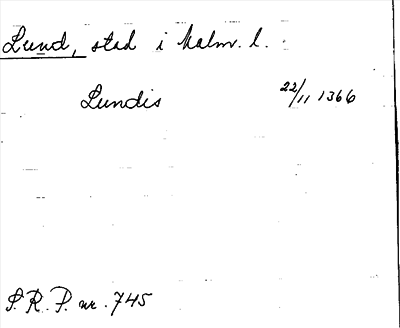 Lund, stad i Malm. l.
Lundis 22/11 1366
S. R. P. nr. 745